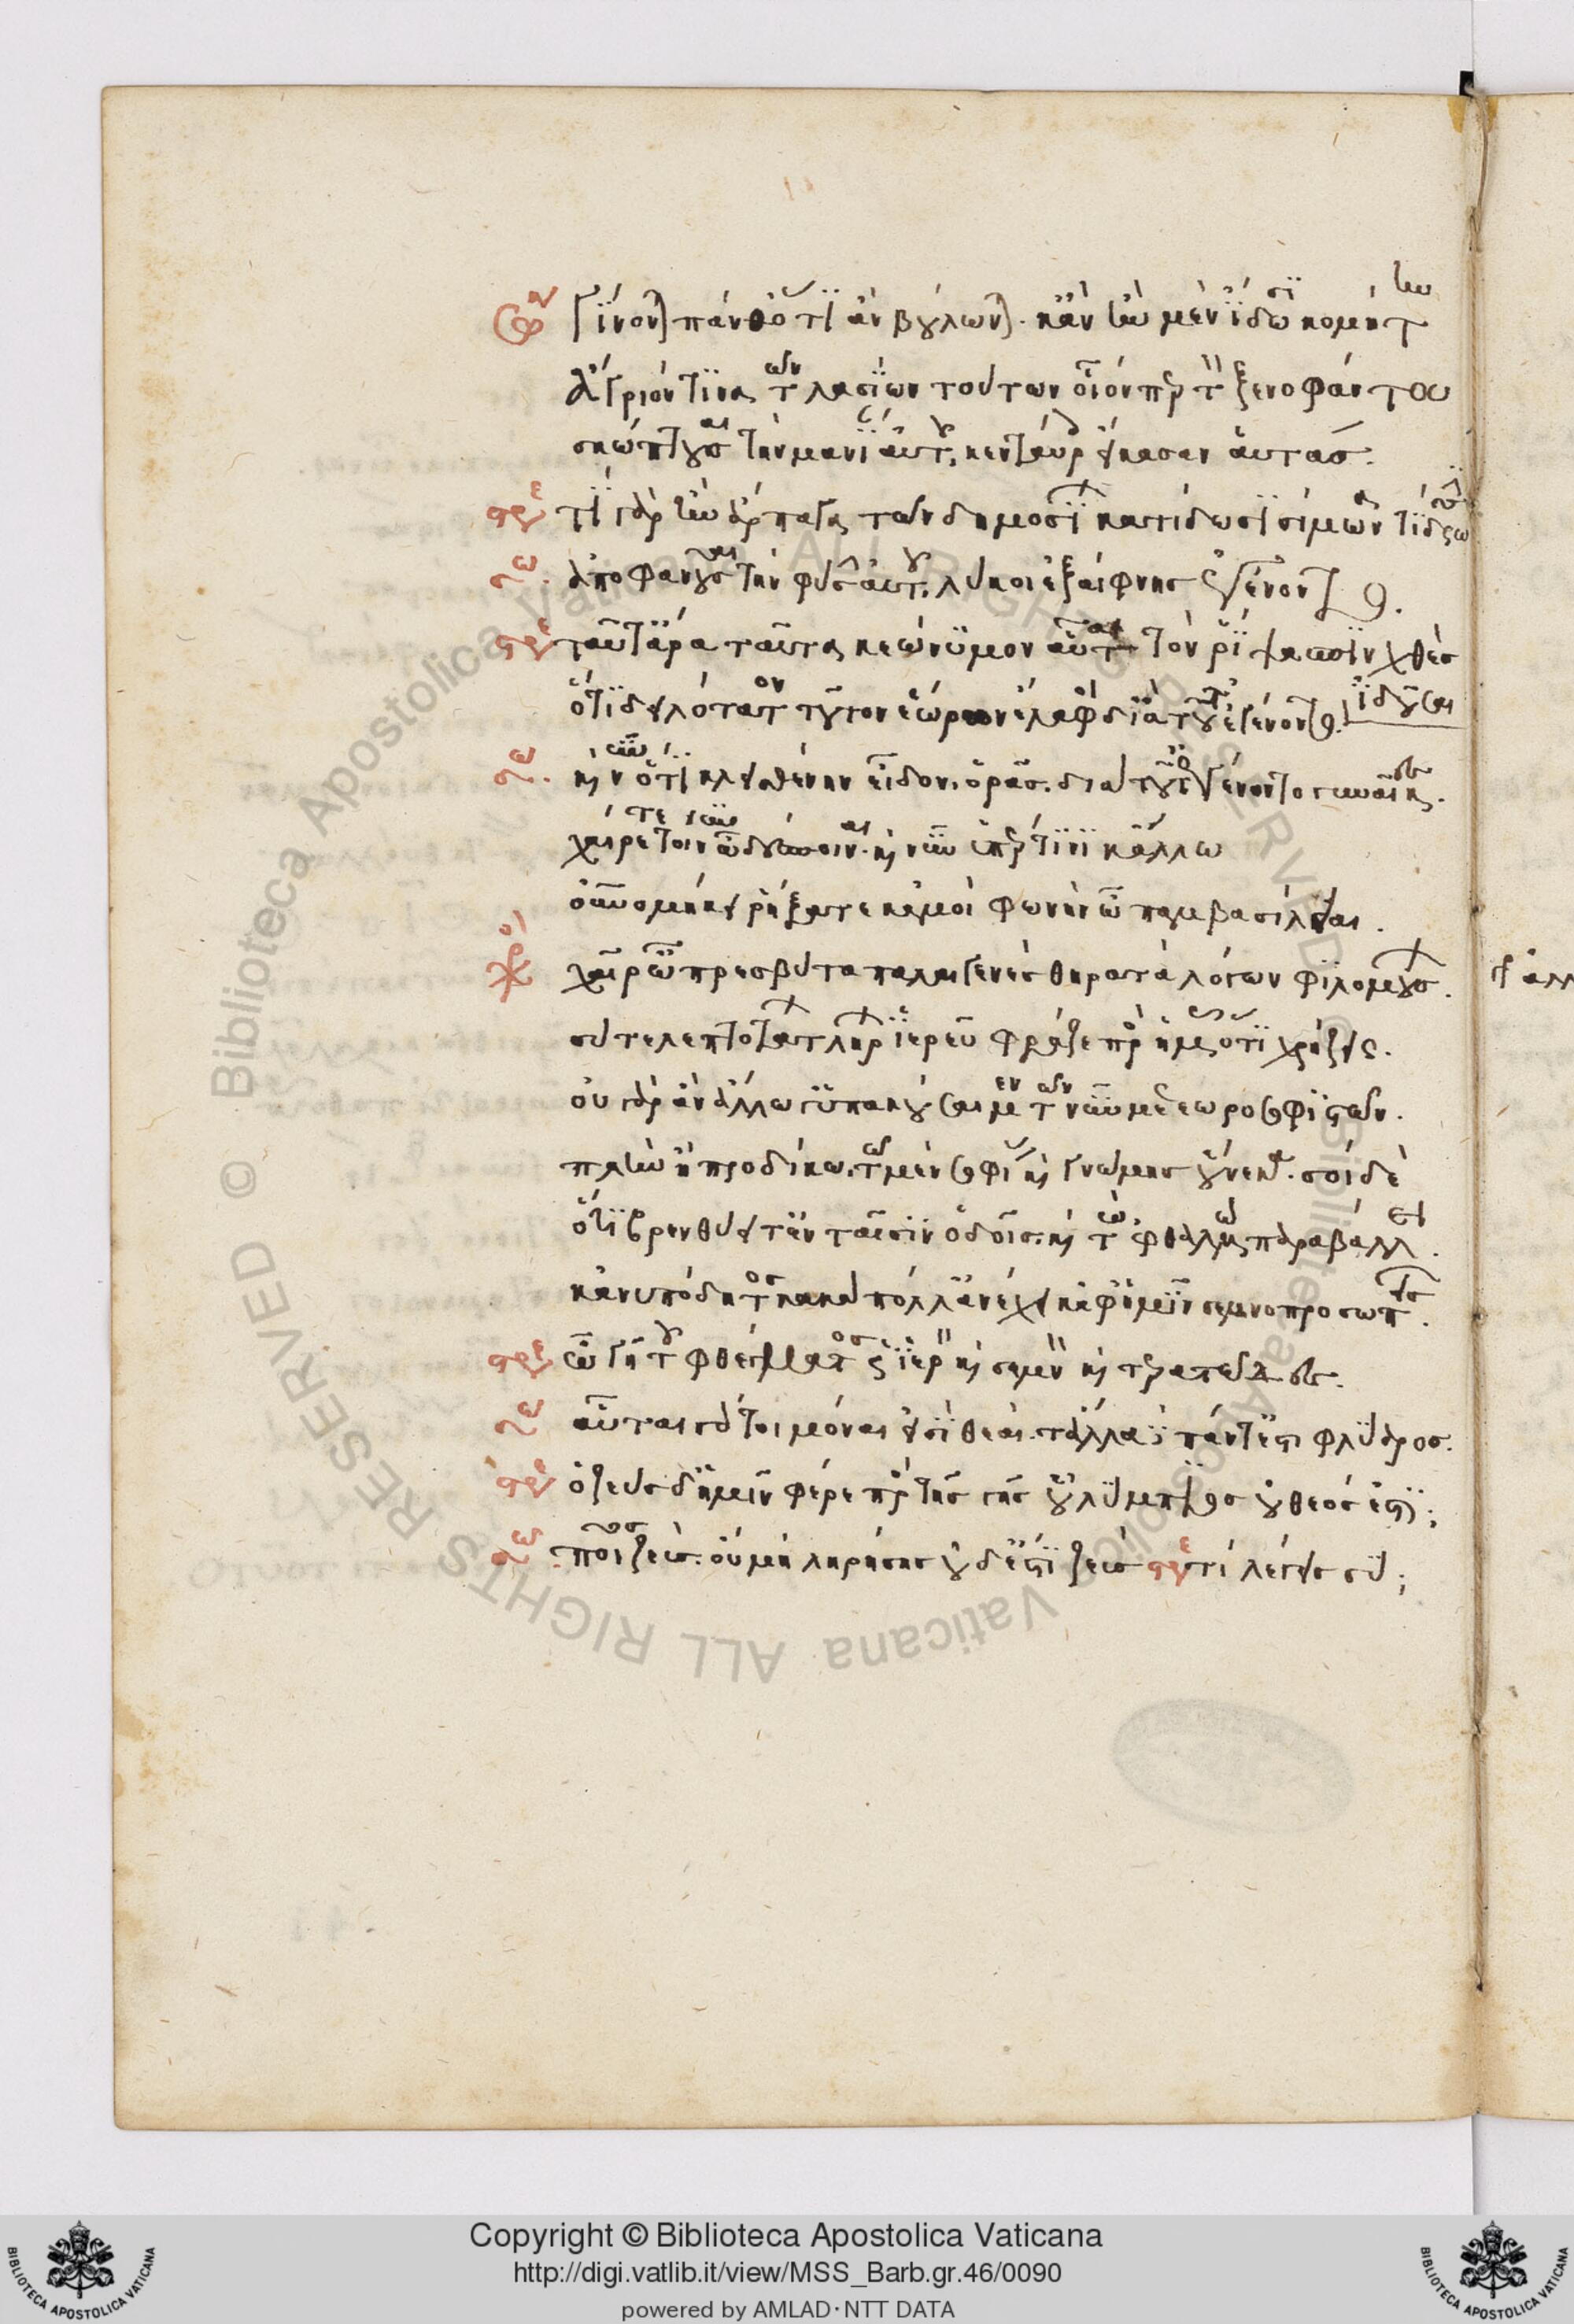 Σω γίνονται πάνθ' ὅ τι ἂν βούλωνται. κἂν μὲν ἴδωσι κομήτην
ἄγριόν τινα τῶν λασίων τούτων οἷόν περ τὸν ξενοφάντου
σκώπτουσαι τὴν μανίαν αὐτοῦ, κενταύροις εἴκασαν αὑτάς.
στρε τί γὰρ ἢν ἅρπαγα τῶν δημοσίων κατίδωσι σίμωνα τί δρῶσι
σω. ἀποφαίνουσαι τὴν φύσιν αὐτοῦ, λύκοι ἐξαίφνης ἐγένοντο.
στρε ταῦτ' ἄρα ταῦτα κλεώνυμον αὗται τὸν ῥίψασπιν χθὲς ἰδοῦσαι
ὅτι δειλότατον τοῦτον ἑώρων ἔλαφοι διὰ τοῦτ' ἐγένοντο.
σω. καὶ νῦν ὅτι κλεισθένην εἶδον. ὁρᾷς. διὰ τοῦτ' ἐγένοντο γυναῖκες.
χαίρετε τοίνυν ὦ δέσποιναι. καὶ νῦν εἴπερ τινὶ κἄλλῳ
οὐρανομήκη ῥήξατε κἀμοὶ φωνὴν ὦ παμβασίλειαι.
χορὸ χαῖρ' ὦ πρεσβῦτα παλαιγενὲς θηρατὰ λόγων φιλομούσων.
σύ τε λεπτοτάτων λήρων ἱερεῦ φράζε πρὸς ἡμᾶς ὅ τι χρῄζεις.
οὐ γὰρ ἂν ἄλλῳ γ' ὑπακούσαιμεν τῶν νῦν μετεωροσοφιστῶν.
πλὴν ἢ προδίκῳ. τῷ μὲν σοφίας καὶ γνώμης οὕνεκα. σοὶ δὲ
ὅτι βρενθύει τ' ἐν ταῖσιν ὁδοῖς. καὶ τὼ ὀφθαλμὼ παραβάλλει.
κἀνυπόδητος κακὰ πόλλ' ἀνέχει κἀφ' ἡμῖν σεμνοπροσωπεῖς.
στρε ὦ γῆ τοῦ φθέγματος ὡς ἱερὸν καὶ σεμνὸν καὶ τερατῶδες.
σω αὗται γάρ τοι μόναι εἰσὶ θεαί. τἄλλα δὲ πάντ' ἐστὶ φλύαρος.
στρε ὁ ζεὺς δ' ἡμῖν φέρε πρὸς τῆς γῆς οὑλύμπιος οὐ θεός ἐστι;
σω ποῖος ζεύς. οὐ μὴ ληρήσῃς οὐδ' ἔστι ζεύς στρε τί λέγεις σύ;
Copyright © Biblioteca Apostolica Vaticana
http://digi.vatlib.it/view/MSS_Barb.gr.46/0090
powered by AMLAD·NTT DATA